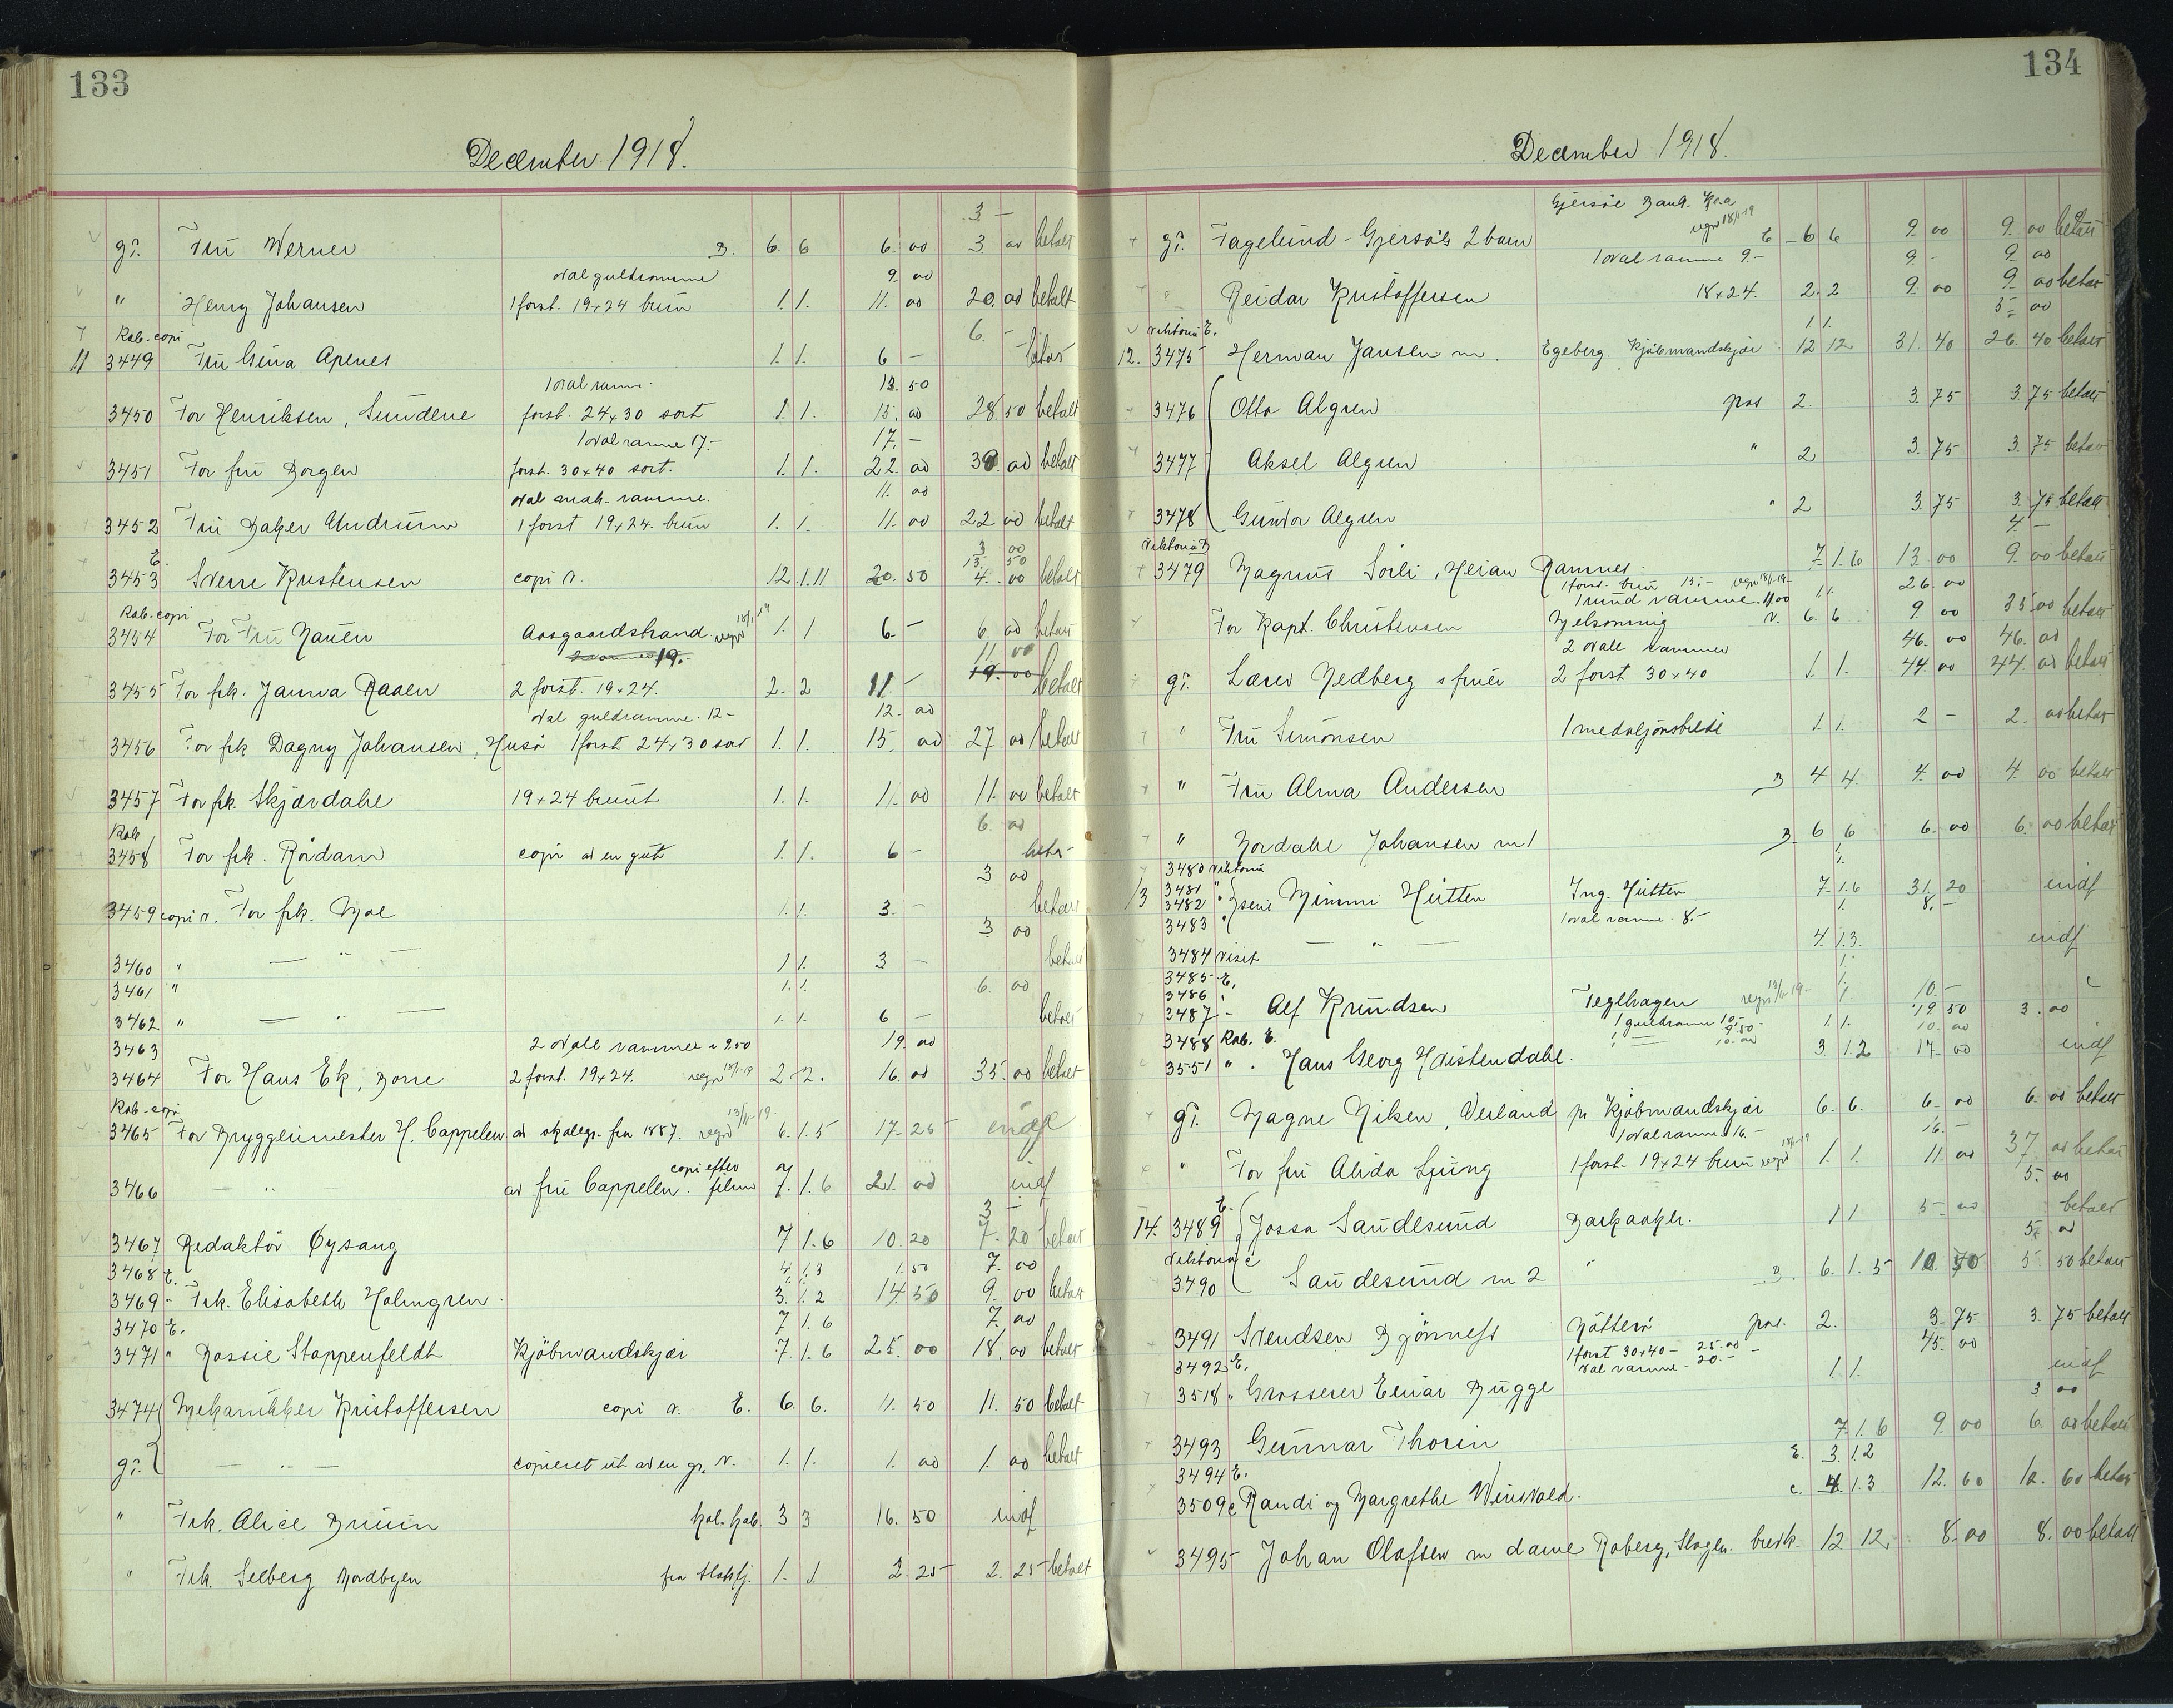 133
December 1918.
3 —
gr. Fru Werner B. 6. 6 6. 00 3. 00 betalt
oval guldramme 9. 00
" Henry Johansen 1 forst. 19x24 brun 1. 1. 11. 00 20. 00 betalt
Kab. copi 6. —
11 3449 Fru Gina Apenes 1. 1. 6 — betalt
1 oval ramme. 13. 50
3450 For Henriksen, Sundene forst. 24x30 sort 1. 1. 15. 00 28. 50 betalt
1 oval ramme 17.- 17. —
3451 For fru Borgen forst. 30x40 sort. 1. 1. 22. 00 39. 00 betalt
oval mah. ramme. 11. 00
3452 Fru Baker Undrum 1 forst 19x24. brun 1. 1. 11. 00 22 00 betalt
E. 3 00
13. 50
3453 Sverre Kristensen copi v. 12. 1. 11 20. 50 4. 00 betalt
Kab. copi
3454 For Fru Hauen Aasgaardstrand. regn 13/1-19 1. 1 6. — 6. 00 betalt
2 rammer 19. 11. 00
3455 For frk. Janna Raaen 2 forst. 19x24. 2. 2 11. — 19. 00 betalt
oval guldramme. 12- 12. 00
3456 For frk Dagny Johansen, Husö 1 forst 24x30 sort 1. 1. 15. 00 27 00 betalt
3457 For frk. Skjærdahl 19x24 brunt 1. 1. 11. 00 11. 00 betalt
Kab 6. 00
3458 For frk. Rödam copi av en gut 1. 1. 6 — betalt
3 00
3459 copi v. For frk. Moe 1. 1. 3. — betalt
3 00
3460 " — " — 1 1. 3 — betalt
3461 " 1. 1. 6. 00
3462 " — " — 1. 1. 6 — betalt
3463 2 ovale rammer a 9.50 19. 00
3464 For Hans Ek, Borre 2 forst. 19x24. regn 13/1-19 2 2. 16. 00 35. 00 betalt
Kab-copi
3465 For Bryggerimester H. Cappelen av skallegr. fra 1887. regn 13/1-19. 6. 1. 5 17. 25 indf
copi efter
3466 — " av fru Cappelen. filmen 7. 1. 6 21. 00 indf
3 —
3467 Redaktör Öysang 7 1. 6 10. 20 7. 20 betalt
3468 E. 4. 1. 3 1. 50 7. 00
3469 " Frk. Elisabeth Holmgren. 3. 1. 2 14. 50 9. 00 betalt
3470 E. 7 1. 6 7. 00
3471 " Rossie Stoppenfeldt Kjöbmandskjær 7. 1. 6 25. 00 18. 00 betalt
3474 Mekanikker Kristoffersen copi v. E. 6. 6. 11. 50 11. 50 betalt
gr. — " — copieret ut av en gr. v. 1. 1. 1. 00 1. 00 betalt
" Frk. Alice Bruun hal. kab. 3 3 16. 50 indf
" Frk. Seeberg Nordbyen 1. 1. 2. 25 2. 25 betalt
134
December 1918.
gr. Fagelund-Gjersöe's 2 barn regn 18/1-19 E 6 6 9. 00 9. 00 betalt
1 oval ramme 9.- 9. - 9. 00
" Reidar Kristoffersen 18x24. 2. 2 9. 00 9. 00 betalt
5. 00
Viktoria E. 1 1.
12. 3475 Herman Jansen m. Egeberg. Kjöbmandskjær. 12 12 31. 40 26. 40 betalt
3476 Otto Algren pos 2. 3. 75 3. 75 betalt
3477 Aksel Algren " 2 3. 75 3. 75 betalt
3478 Gunvor Algren " 2 3. 75 3. 75 betalt
4. —
Viktoria B
3479 Magnus Sörli, Heian Ramnes. 7. 1. 6 13. 00 9. 00 betalt
1 forst. brun 15.- regn 18/1-19- 1 1. 26. 00
1 rund ramme. 11.00
For Kapt. Christensen Melsomvig v. 6. 6 9. 00 35. 00 betalt
2 ovale rammer 46. 00 46. 00
gr. Lærer Hedberg & frue 2 forst 30x40 1. 1. 44. 00 44. 00 betalt
" Fru Simonsen 1 medaljonsbilde 1. 1. 2 — 2. 00 betalt
" Fru Alma Andersen B 4 4. 4. 00 4. 00 betalt
" Nordahl Johansen m/ B. 6 6 6. 00 6. 00 betalt
3480 Viktoria 1.
13 3481 "
3482 " serie Mimmi Hütten Ing. Hütten 7. 1. 6 31. 20 indf
3483 " 1 oval ramme. 8.- 1. 8. —
3484 visit — " — 4. 1. 3. indf
3485 E. 1.
3486 "
3487 " Alf Knudsen Teglhagen regn 13/1-19- 1 10. -
1 guldramme 10.- 19 50 3. 00
3488 Kab. E. 1 — 9.50- 1. 1. 10. 00
3551 " . Hans Georg Hvistendahl. 10. 00 3 1. 2 17. 00 indf
gr. Magne Nilsen, Verland pr Kjöbmandskjær 6. 6. 6. 00 6. 00 betalt
1 oval ramme 16.- 16. —
" For fru Alida Ljung 1 forst. 19x24 brun regn 13/1-19 1. 1. 11. 00 37. 00 betalt
5. 00
E.
14. 3489 Jossa Sandesund Barkaaker. 1 1 5. 00 betalt
5. 00
Viktoria c
3490 Sandesund m 2 " B. 6. 1. 5 10. 50 5. 50 betalt
3491 Svendsen Nötterö pos. 2. 3. 75 3. 75 betalt
1 forst 30x40- 25.00 45. 00
3492 E. oval ramme- 20.- 1 1. indf
3518 " Grosserer Einar Bugge 3 00
3493 Gunnar Thorin 7. 1. 6 9. 00 6. 00 betalt
3494 E. E. 3. 1. 2
3509 c Randi og Margrethe Winsvold. c. 4. 1. 3 12. 60 12. 60 betalt
3495 Johan Olafsen m dame Roberg, Slagen. brevk. 12 12. 8. 00 8. 00 betalt